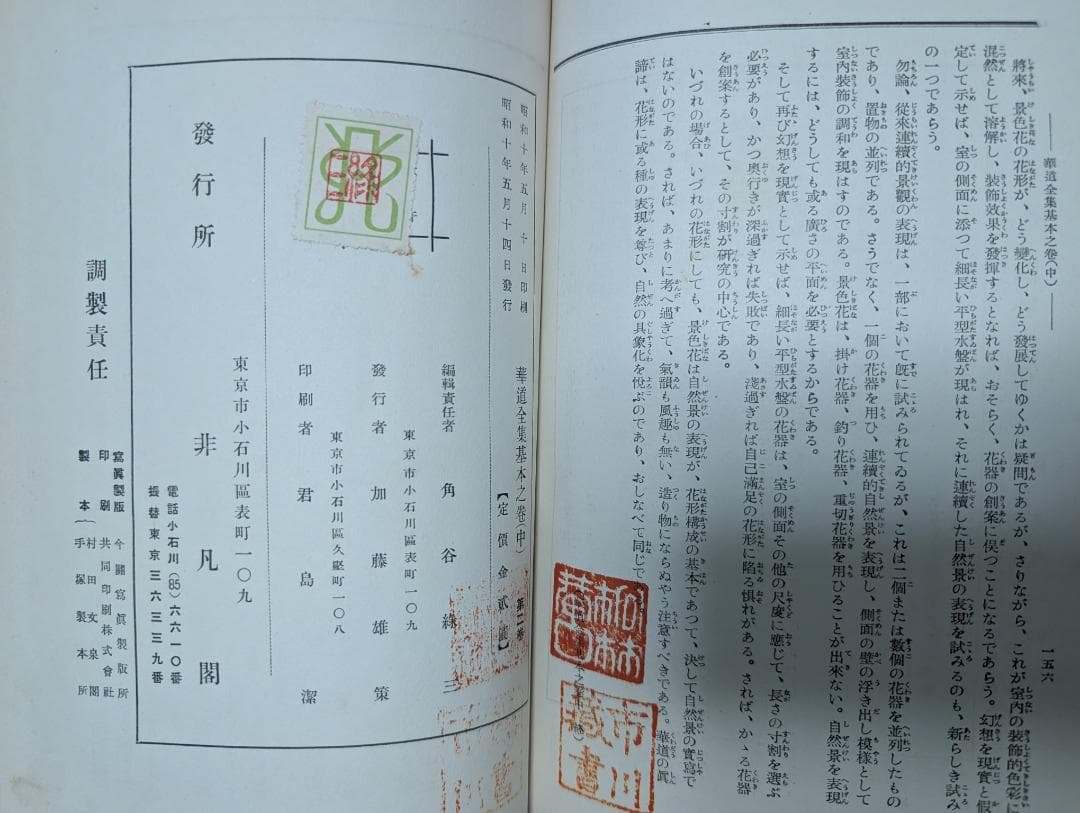 ——華道全集基本之卷(中)——
一五六
將來、景色花の花形が、どう變化し、どう發展してゆくかは疑問であるが、さりながら、これが室內の裝飾的色彩に
混然として溶解し、裝飾效果を發揮するとなれば、おそらく、花器の創案に俟つことになるであらう。幻想を現實と假
定して示せば、室の側面に添つて細長い平型水盤が現はれ、それに連續した自然景の表現を試みるのも、新らしき試み
の一つであらう。
勿論、從來連續的景觀の表現は、一部において旣に試みられてゐるが、これは二個または數個の花器を並列したもの
であり、置物の並列である。さうでなく、一個の花器を用ひ、連續的自然景を表現し、側面の壁の浮き出し模樣として
室內裝飾の調和を現はすのである。景色花は、掛け花器、釣り花器、重切花器を用ひることが出來ない。自然景を表現
するには、どうしても或る廣さの平面を必要とするからである。
そして再び幻想を現實として示せば、細長い平型水盤の花器は、室の側面その他の尺度に應じて、長さの寸割を選ぶ
必要があり、かつ奧行きが深過ぎれば失敗であり、淺過ぎれば自己滿足の花形に陷る惧れがある。されば、かゝる花器
を創案するとして、その寸割が硏究の中心である。
いづれの場合、いづれの花形にしても、景色花は自然景の表現が、花形構成の基本であつて、決して自然景の實寫で
はないのである。されば、あまりに考へ過ぎて、氣韻も風趣も無い、造り物にならぬやう注意すべきである。華道の眞
諦は、花形に或る種の表現を尊び、自然の具象化を悅ぶのであり、おしなべて同じで
市川
藏書
華道全集基本之卷(中)
第二卷
【定價金貳圓】
昭和十年五月十日印刷
昭和十年五月十四日發行
編輯責任者 角谷綠三
東京市小石川區表町一〇九
發行者 加藤雄策
東京市小石川區久堅町一〇八
印刷者 君島潔
東京市小石川區表町一〇九
發行所 非凡閣
電話小石川(85)六六一〇番
振替東京三六三三九番
調製責任
寫眞製版 今關寫眞製版所
印刷 共同印刷株式會社
製本 村田文泉閣
手塚製本所